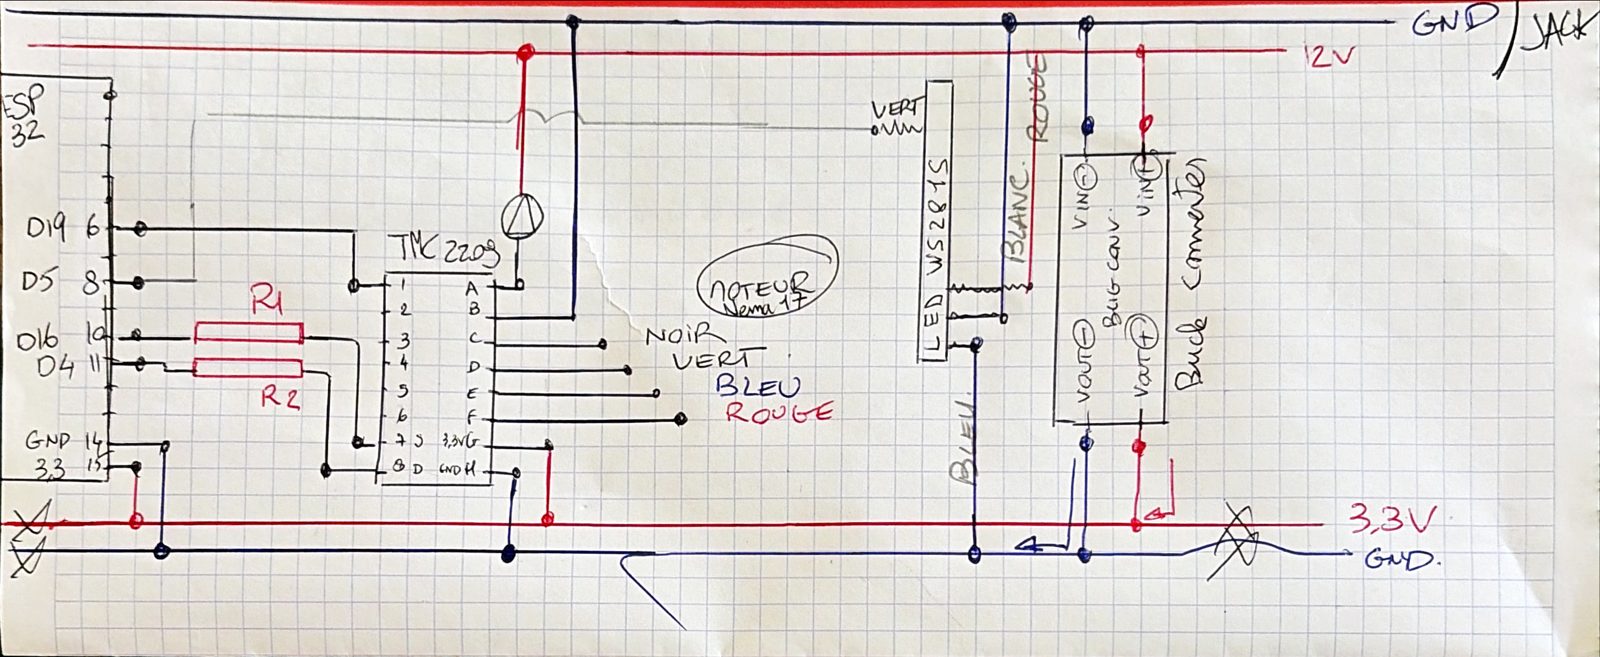 GND / JACK
12V
ESP
32
D19 6
D5 8
D16 10
D4 11
GND 14
3,3 15
R1
R2
TMC 2209
1 A
2 B
3 C
4 D
5 E
6 F
7 S 3,3V G
8 D GND H
MOTEUR
Nema 17
NOIR
VERT
BLEU
ROUGE
VERT
LED WS2815
BLANC.
ROUGE
BLEU
VIN -
VIN +
BUG CONV.
VOUT -
VOUT +
Buck Converter
3,3V
GND.